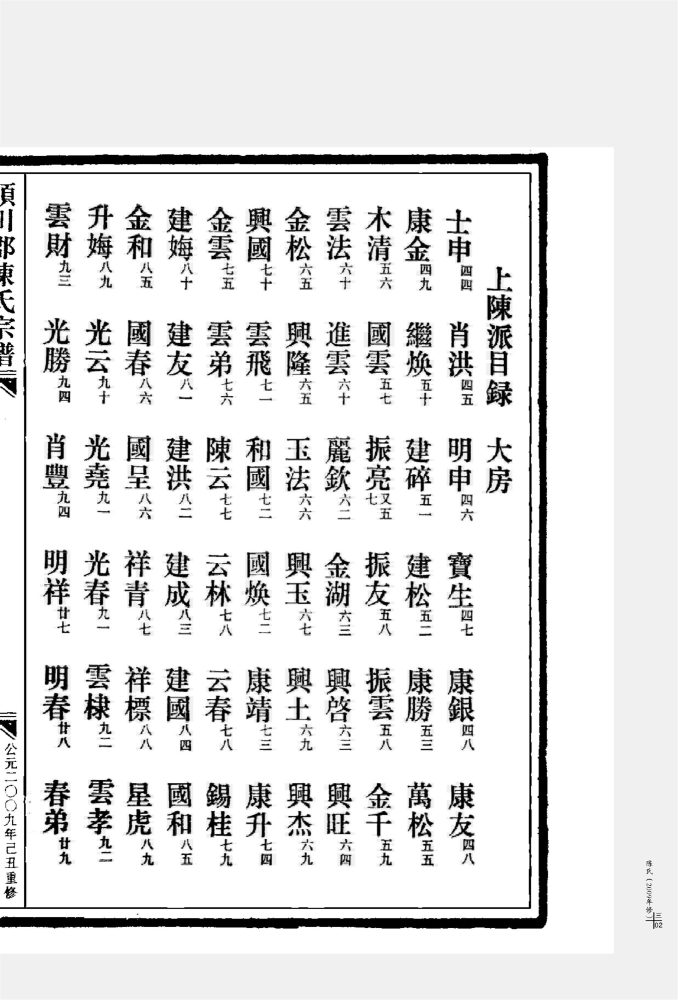 上陳派目録 大房
士申四四 肖洪四五 明申四六 寶生四七 康銀四八 康友四八
康金四九 繼焕五十 建碎五一 建松五二 康勝五三 萬松五五
木清五六 國雲五七 振亮又五七 振友五八 振雲五八 金千五九
雲法六十 進雲六十 麗欽六二 金湖六三 興啓六三 興旺六四
金松六五 興隆六五 玉法六六 興玉六七 興土六九 興杰六九
興國七十 雲飛七一 和國七二 國焕七二 康靖七三 康升七四
金雲七五 雲弟七六 陳云七七 云林七八 云春七八 錫桂七九
建娒八十 建友八一 建洪八二 建成八三 建國八四 國和八五
金和八五 國春八六 國呈八六 祥青八七 祥標八八 星虎八九
升娒八九 光云九十 光堯九一 光春九一 雲棣九二 雲孝九二
雲財九三 光勝九四 肖豐九四 明祥廿七 明春廿八 春弟廿九
潁川郡陳氏宗譜
公元二〇〇九年己丑重修
陈氏（2009年修）
三
02